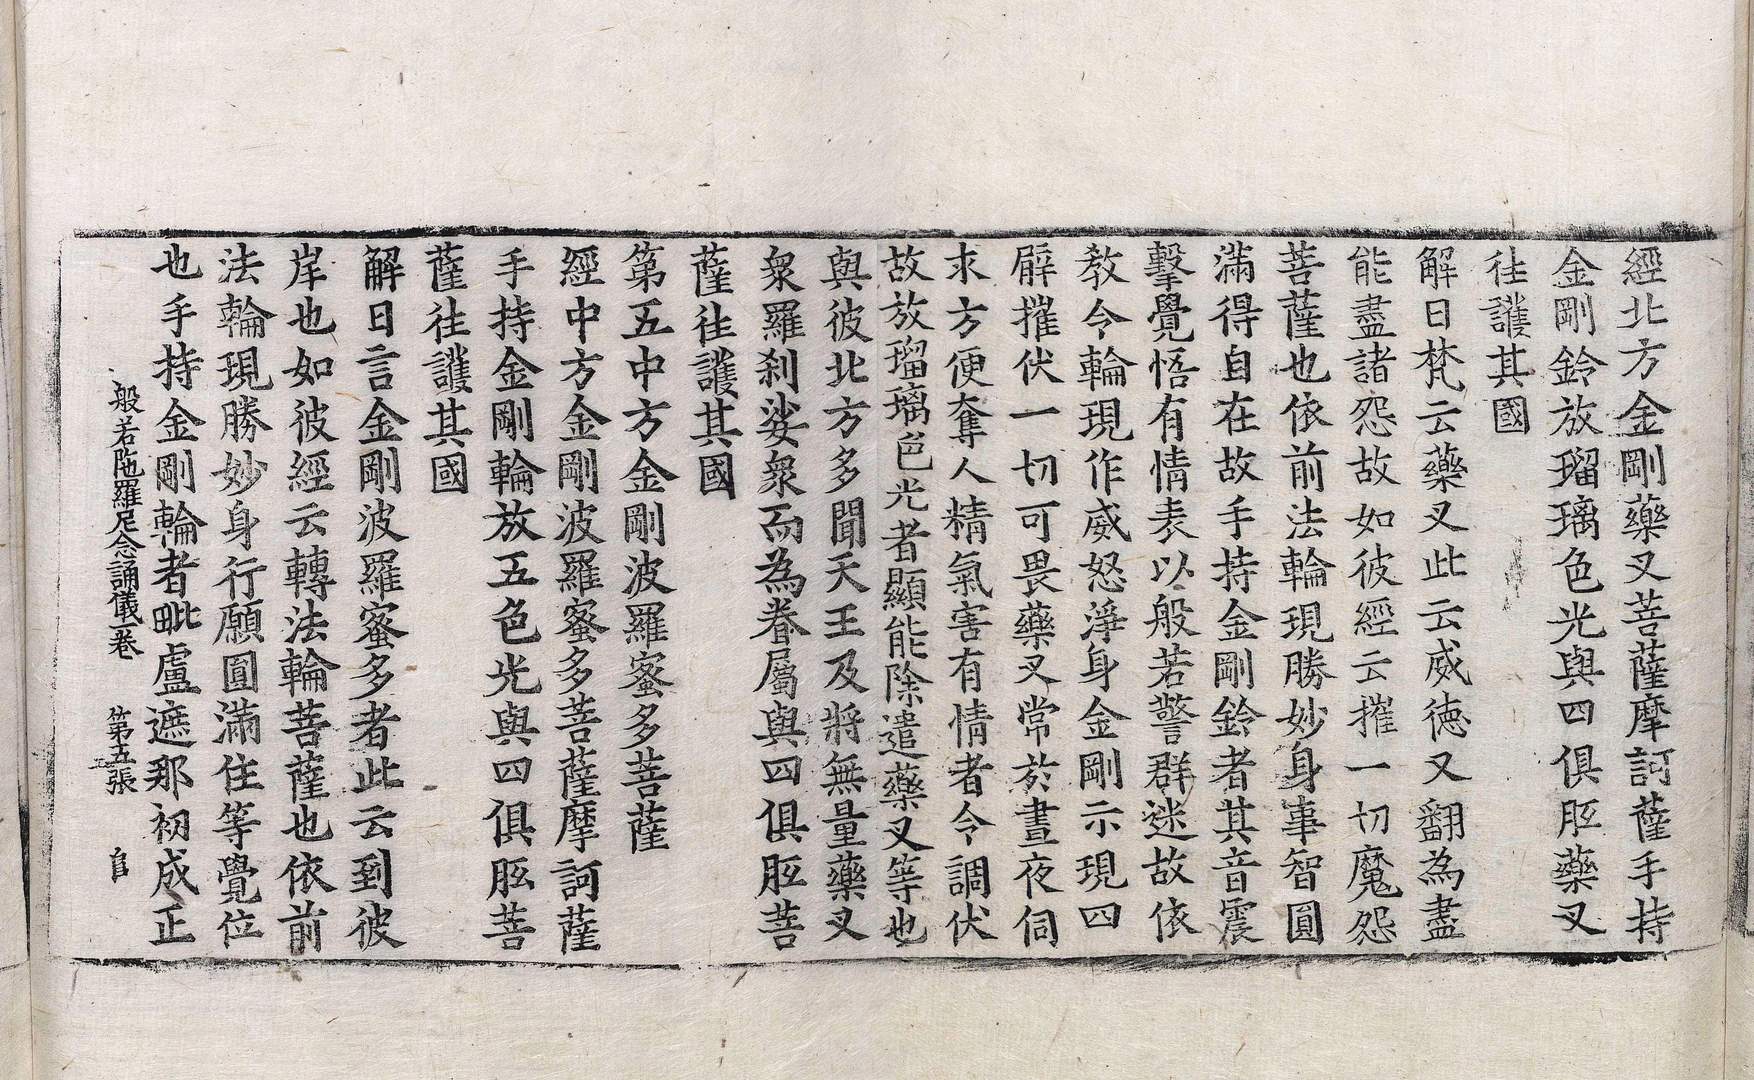 經北方金剛藥叉菩薩摩訶薩手持
金剛鈴放瑠璃色光與四俱胝藥叉
往護其國
解曰梵云藥叉此云威徳又翻為盡
能盡諸怨故如彼經云摧一切魔怨
菩薩也依前法輪現勝妙身事智圓
滿得自在故手持金剛鈴者其音震
擊覺悟有情表以般若警群迷故依
教令輪現作威怒淨身金剛示現四
臂摧伏一切可畏藥叉常於晝夜伺
求方便奪人精氣害有情者令調伏
故放瑠璃色光者顯能除遣藥叉等也
與彼北方多聞天王及將無量藥叉
衆羅刹娑衆而為眷屬與四俱胝菩
薩往護其國
第五中方金剛波羅蜜多菩薩
經中方金剛波羅蜜多菩薩摩訶薩
手持金剛輪放五色光與四俱胝菩
薩往護其國
解曰言金剛波羅蜜多者此云到彼
岸也如彼經云轉法輪菩薩也依前
法輪現勝妙身行願圓滿住等覺位
也手持金剛輪者毗盧遮那初成正
般若陁羅尼念誦儀一卷 第五張 自